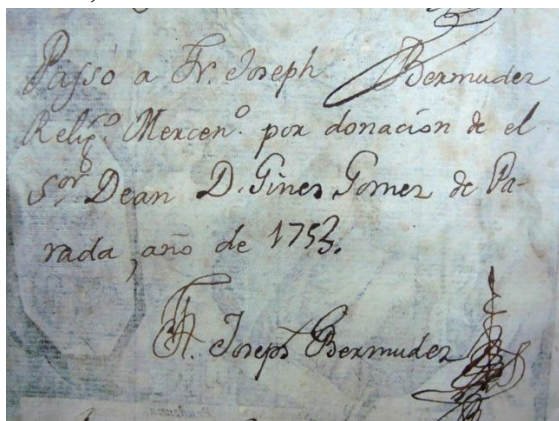 Passò a Fr. Joseph Bermudez
Relig.º Mercen.º por donacion de el
S.or Dean D. Gines Gomez de Pa-
rada, año de 1753.
Fr. Joseph Bermudez